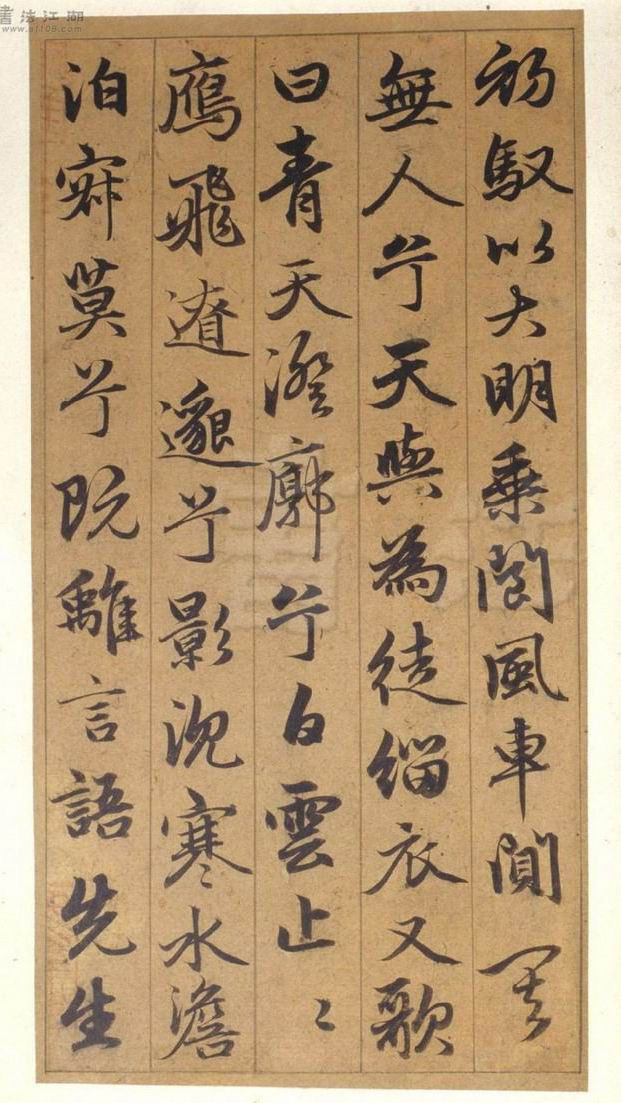 書法江湖
初馭以大明乘閬風車閴其
無人兮天與為徒緇衣又歌
曰青天澄廓兮白雲止〻
鴈飛遼邈兮影沉寒水澹
泊寂莫兮既離言語先生